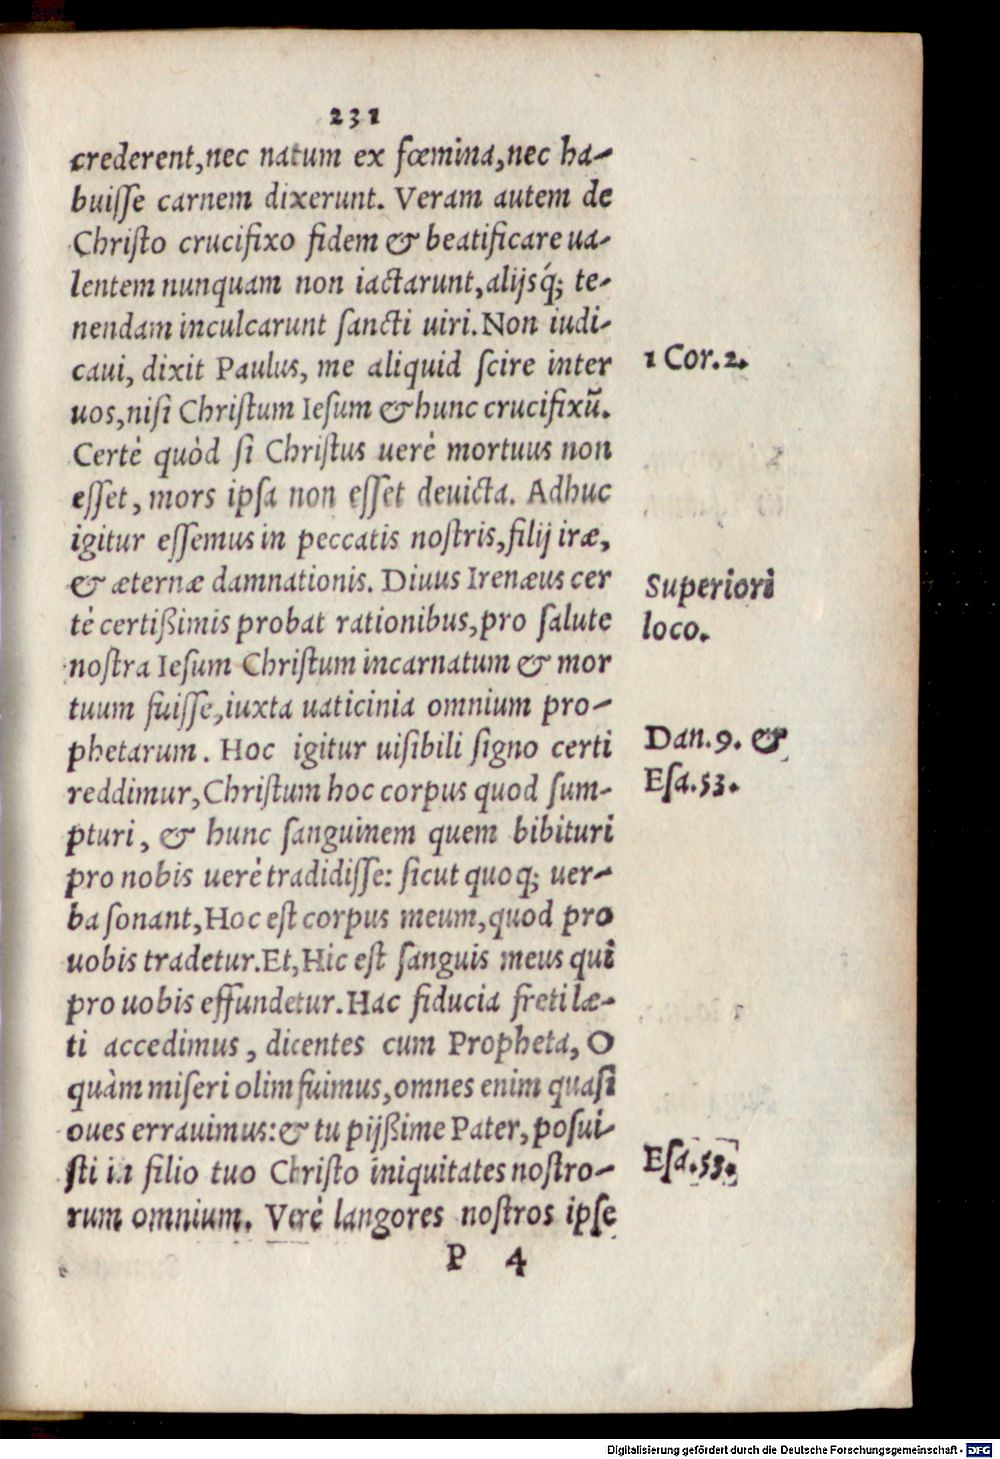 231
crederent, nec natum ex fœmina, nec ha-
buiſſe carnem dixerunt. Veram autem de
Chriſto crucifixo fidem & beatificare ua-
lentem nunquam non iactarunt, alijsq́; te-
nendam inculcarunt ſancti uiri. Non iudi-
caui, dixit Paulus, me aliquid ſcire inter
1 Cor. 2.
uos, niſi Chriſtum Ieſum & hunc crucifixũ.
Certè quòd ſi Chriſtus uerè mortuus non
eſſet, mors ipſa non eſſet deuicta. Adhuc
igitur eſſemus in peccatis noſtris, filij iræ,
& æternæ damnationis. Diuus Irenæus cer
Superiori
tè certißimis probat rationibus, pro ſalute
loco.
noſtra Ieſum Chriſtum incarnatum & mor
tuum fuiſſe, iuxta uaticinia omnium pro-
phetarum. Hoc igitur uiſibili ſigno certi
Dan. 9. &
reddimur, Chriſtum hoc corpus quod ſum-
Eſa. 53.
pturi, & hunc ſanguinem quem bibituri
pro nobis uerè tradidiſſe: ſicut quoq; uer-
ba ſonant, Hoc eſt corpus meum, quod pro
uobis tradetur. Et, Hic eſt ſanguis meus qui
pro uobis effundetur. Hac fiducia freti læ-
ti accedimus, dicentes cum Propheta, O
quàm miſeri olim fuimus, omnes enim quaſi
oues errauimus: & tu pijßime Pater, poſui-
ſti in filio tuo Chriſto iniquitates noſtro-
Eſa. 53.
rum omnium. Verè langores noſtros ipſe
P 4
Digitalisierung gefördert durch die Deutsche Forschungsgemeinschaft - DFG